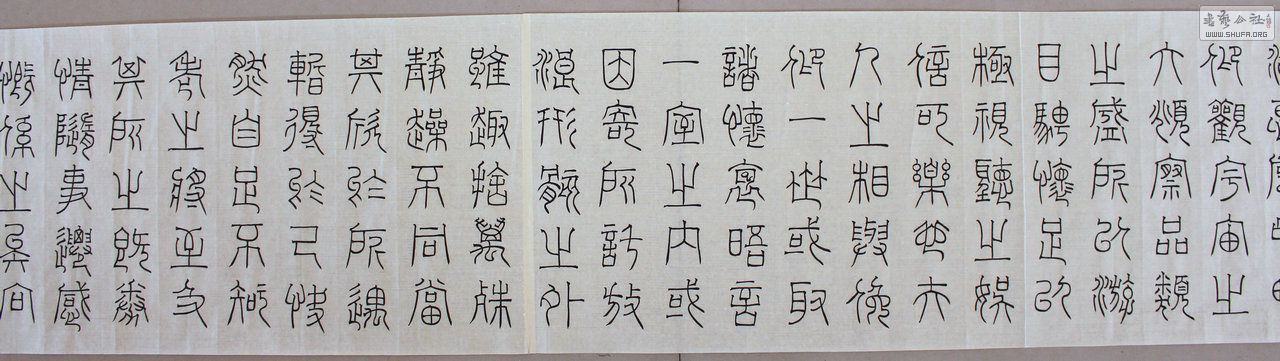 仰觀宇宙之
大頫察品類
之盛所以游
目騁懷足以
極視聽之娛
信可樂也夫
人之相與俛
仰一世或取
諸懷袌晤言
一室之內或
因寄所託放
浪形骸之外
雖趣捨萬殊
靜趮不同當
其欣於所遇
暫得於己快
然自足不知
老之將至及
其所之既惓
情隨事遷感
慨係之矣向
书艺公社
WWW.SHUFA.ORG